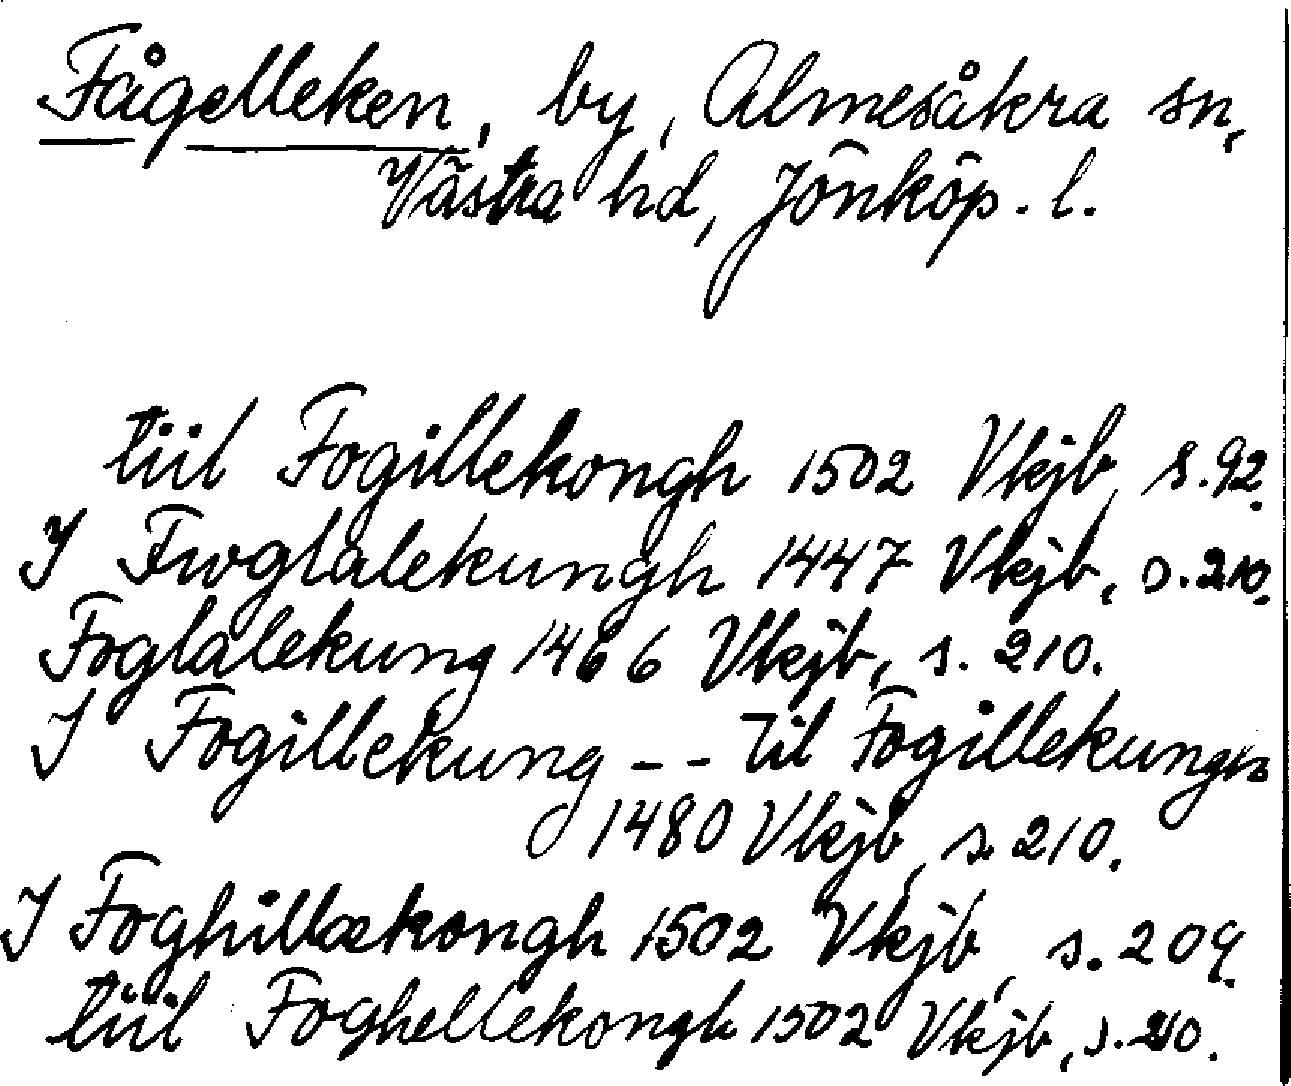 Fågelleken, by, Almesåkra sn,
Västra hd, Jönköp. l.
tiil Fogillekongh 1502 Vkjb, s. 92.
J Fwglalekungh 1447 Vkjb, s. 210.
Foglalekung 1466 Vkjb, s. 210.
J Fogillekung -- Til Fogillekungen
1480 Vkjb, s. 210.
J Foghillækongh 1502 Vkjb, s. 209.
tiil Foghellekongh 1502 Vkjb, s. 210.